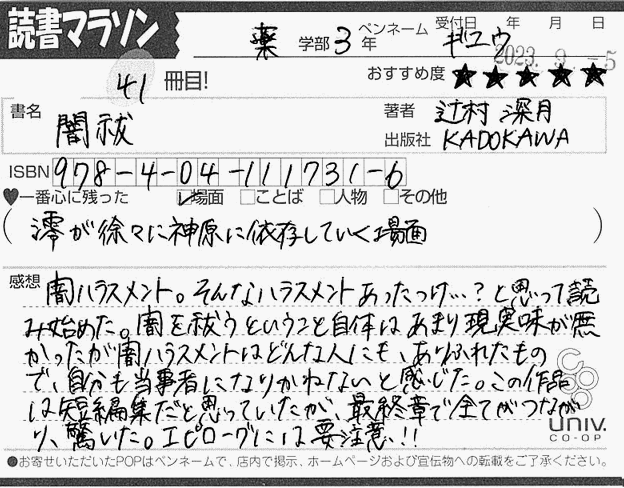 読書マラソン
薬 学部 3 年 ペンネーム ギユウ 受付日 年 月 日
2023. 9. -5
41 冊目! おすすめ度 ★★★★★
書名 闇祓 著者 辻村 深月
出版社 KADOKAWA
ISBN 978-4-04-111731-6
♥一番心に残った ☑場面 □ことば □人物 □その他
(澪が徐々に神原に依存していく場面)
感想 闇ハラスメント。そんなハラスメントあったっけ…?と思って読
み始めた。闇を祓うということ自体はあまり現実味が無
かったが闇ハラスメントはどんな人にも、ありふれたもの
で、自分も当事者になりかねないと感じた。この作品
は短編集だと思っていたが、最終章で全てがつなが
り、驚いた。エピローグには要注意!!
coop
univ.
CO-OP
●お寄せいただいたPOPはペンネームで、店内で掲示、ホームページおよび宣伝物への転載をご了承ください。